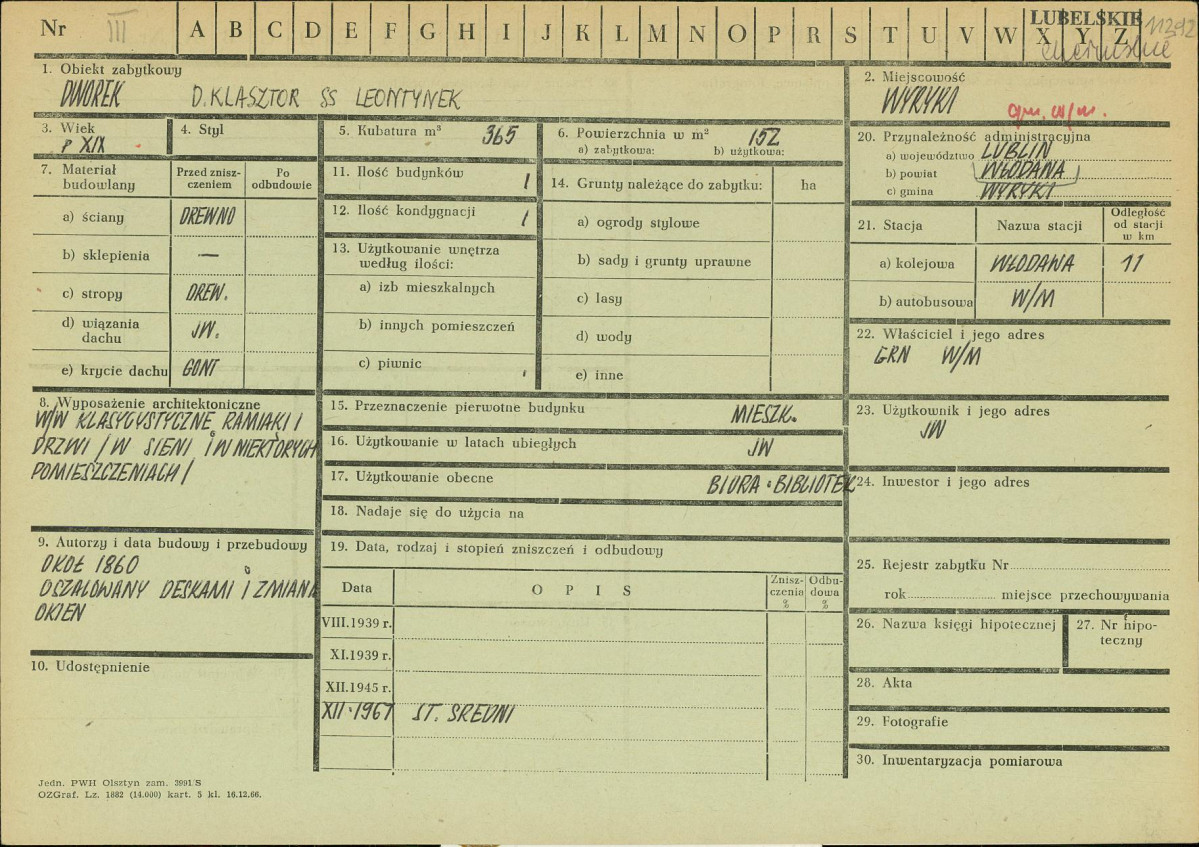 Nr III A B C D E F G H I J K L M N O P R S T U V W X Y Z
LUBELSKIE
11292
1. Obiekt zabytkowy
DWOREK D. KLASZTOR SS LEONTYNEK
2. Miejscowość
WYRYKI
gm. w/m.
3. Wiek
P XIX
4. Styl
5. Kubatura m³ 365
6. Powierzchnia w m² 152
a) zabytkowa: b) użytkowa:
20. Przynależność administracyjna
a) województwo LUBLIN
b) powiat WŁODAWA
c) gmina WYRYKI
7. Materiał budowlany
Przed zniszczeniem
Po odbudowie
a) ściany DREWNO
b) sklepienia —
c) stropy DREW.
d) wiązania dachu JW.
e) krycie dachu GONT
11. Ilość budynków 1
12. Ilość kondygnacji 1
13. Użytkowanie wnętrza
według ilości:
a) izb mieszkalnych
b) innych pomieszczeń
c) piwnic
14. Grunty należące do zabytku: ha
a) ogrody stylowe
b) sady i grunty uprawne
c) lasy
d) wody
e) inne
21. Stacja Nazwa stacji Odległość od stacji w km
a) kolejowa WŁODAWA 11
b) autobusowa W/M
22. Właściciel i jego adres
GRN W/M
8. Wyposażenie architektoniczne
W/W KLASYCYSTYCZNE RAMIAKI I
DRZWI /W SIENI I W NIEKTÓRYCH
POMIESZCZENIACH/
15. Przeznaczenie pierwotne budynku MIESZK.
16. Użytkowanie w latach ubiegłych JW
17. Użytkowanie obecne BIURA · BIBLIOTEK
18. Nadaje się do użycia na
23. Użytkownik i jego adres
JW
24. Inwestor i jego adres
9. Autorzy i data budowy i przebudowy
OKOŁ 1860
OSZALOWANY DESKAMI I ZMIANA
OKIEN
10. Udostępnienie
19. Data, rodzaj i stopień zniszczeń i odbudowy
Data OPIS Zniszczenia % Odbudowa %
VIII.1939 r.
XI.1939 r.
XII.1945 r.
XII·1967 ST. SREDNI
25. Rejestr zabytku Nr
rok miejsce przechowywania
26. Nazwa księgi hipotecznej
27. Nr hipoteczny
28. Akta
29. Fotografie
30. Inwentaryzacja pomiarowa
Jedn. PWH Olsztyn zam. 3991/S
OZGraf. Lz. 1882 (14.000) kart. 5 kl. 16.12.66.